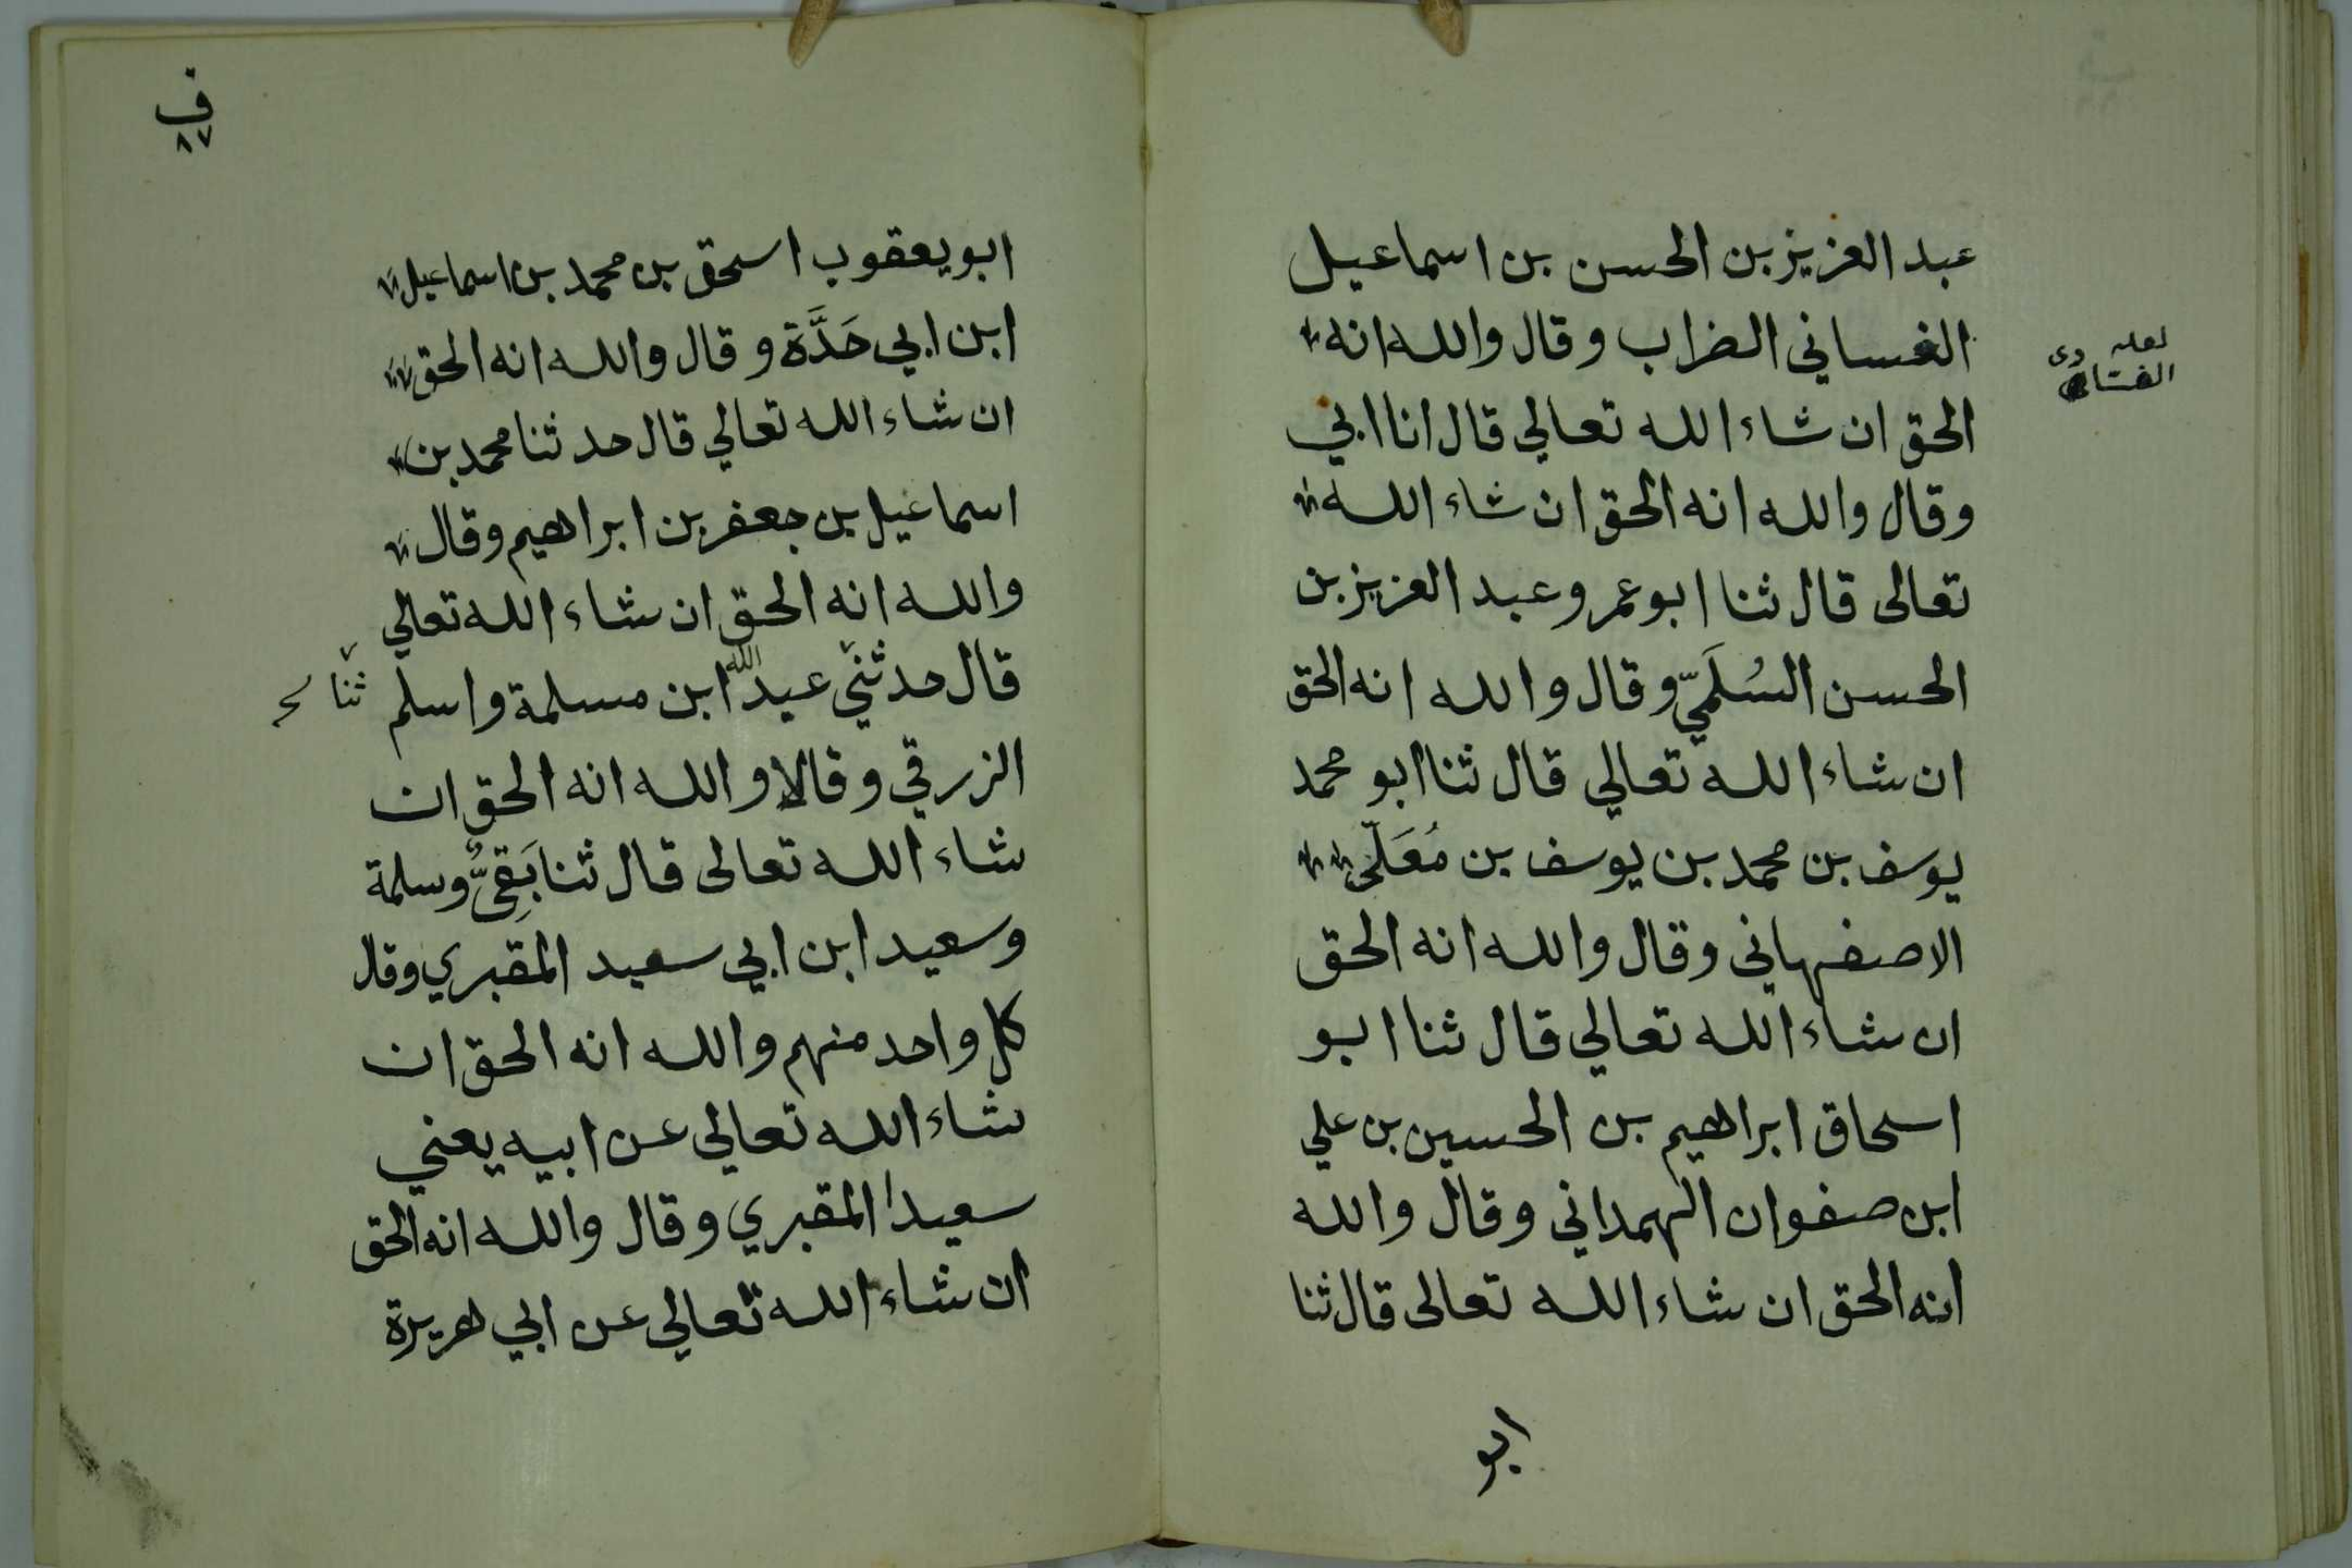 عبد العزيز بن الحسن بن اسماعيل
الغساني الضراب وقال والله انه
لعله
الحق ان شاء الله تعالي قال انا ابي
وقال والله انه الحق ان شاء الله
تعالى قال ثنا ابو عمر وعبد العزيز بن
الحسن السُلَمَيّ وقال والله انه الحق
ان شاء الله تعالي قال ثنا ابو محمد
يوسف بن محمد بن يوسف بن مُعَلّى
الاصفهاني وقال والله انه الحق
ان شاء الله تعالي قال ثنا ابو
اسحاق ابراهيم بن الحسين بن علي
ابن صفوان الهمداني وقال والله
انه الحق ان شاء الله تعالى قال ثنا
ابو
ف
٨٧
ابو يعقوب اسحق بن محمد بن اسماعيل
ابن ابي حَدَّة وقال والله انه الحق
ان شاء الله تعالي قال حدثنا محمد بن
اسماعيل بن جعفر بن ابراهيم وقال
والله انه الحق ان شاء الله تعالي
قال حدثني عبد الله ابن مسلمة واسلم ثنا
الزرقي وقالا والله انه الحق ان
شاء الله تعالى قال ثنا بَقِىٌّ وسلمة
وسعيد ابن ابي سعيد المقبري وقال
كل واحد منهم والله انه الحق ان
شاء الله تعالي عن ابيه يعني
سعيدا المقبري وقال والله انه الحق
ان شاء الله تعالي عن ابي هريرة